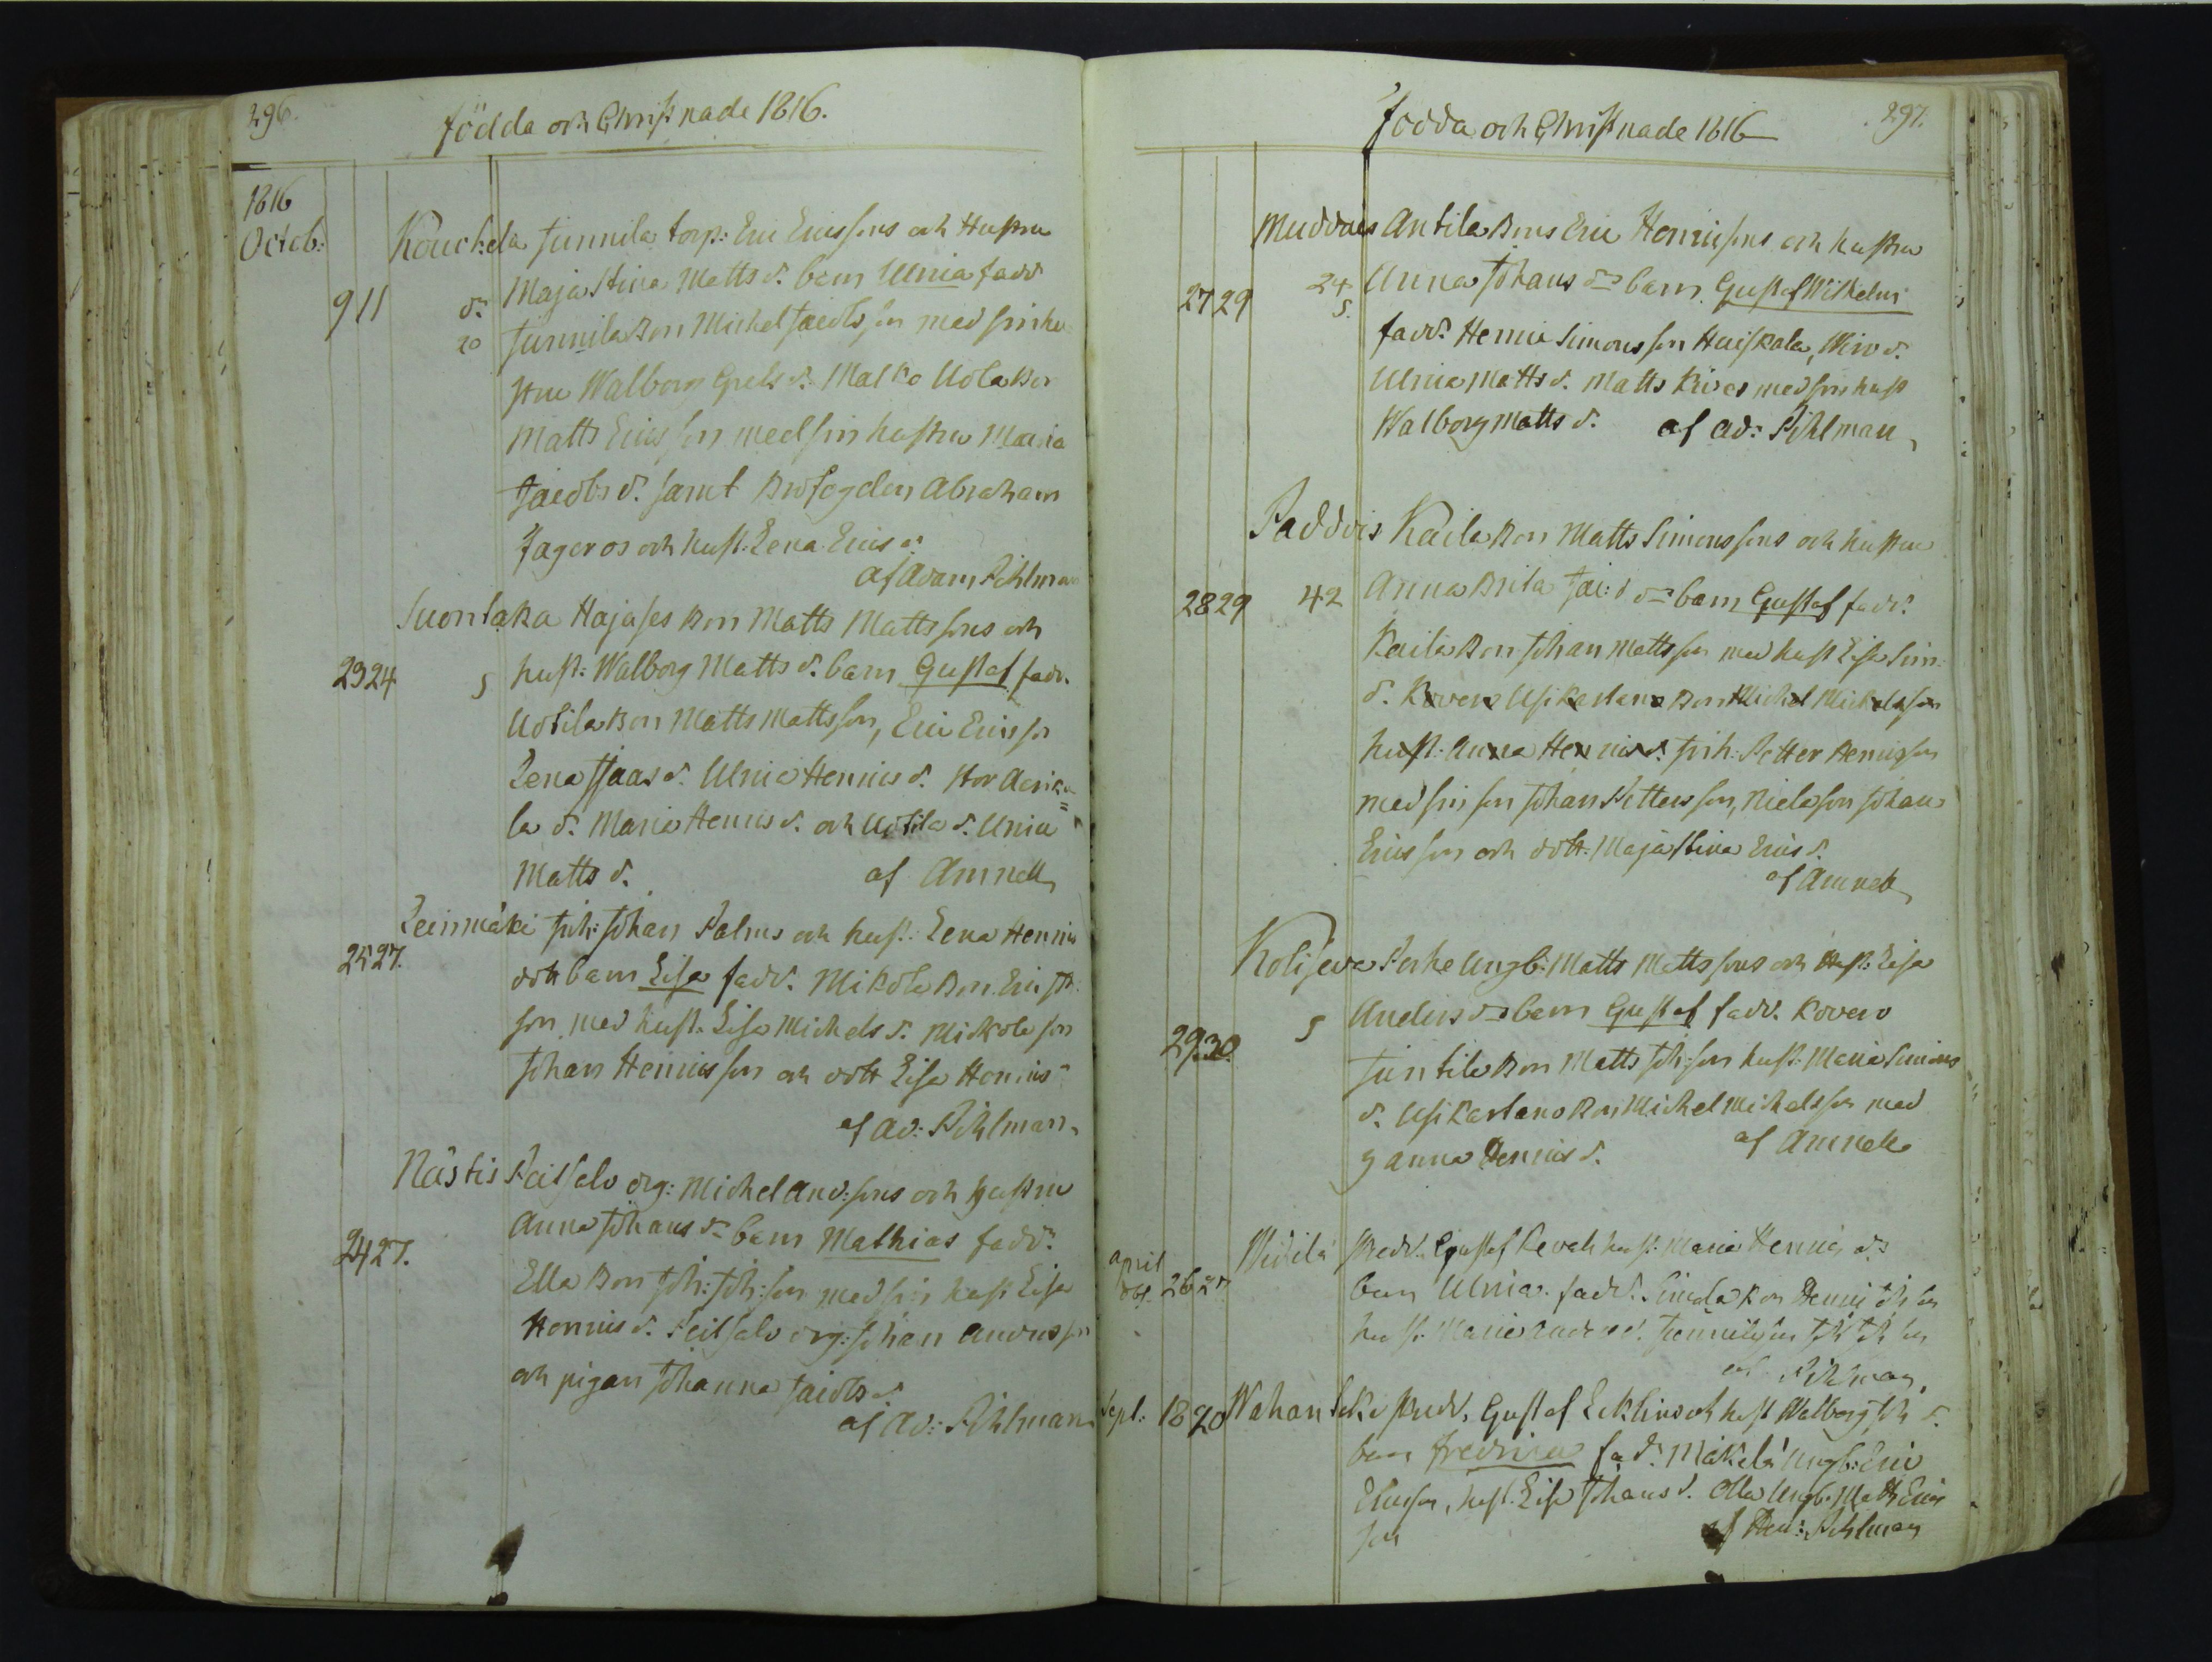 296.
Födda och Christnade 1816.
1816
Octob:
Kouckela Junnila torp: Eric Ericssons och Hustru
9 11 dr Maja Stina Matts d. barn Ulrica fadd
20 Junnila Bon Michel Jacobsson med sin hu-
stru Walborg Grels d. Matko Uola Bon
Matts Ericsson med sin hustru Maria
Jacobs d. samt Brofogden Abraham
Fageros och hust. Lena Erics d.
af Adam Pihlman
Suontaka Hajases Bon Matts Mattssons och
23 24 5 hust: Walborg Matts d. barn Gustaf fadd.
Uotila Bon Matts Mattsson, Eric Ericsson
Lena Isaas d. Ulrica Henrics d. Stor
la d. Maria Henrics d. och Uotila d. Ulrica
Matts d. af Amnell
Leinmäki Johan Palmus och hust: Lena Henrics
25 27. dott barn Lisa fadd. Mikola Bon Eric Joh:
son med hust. Lisa Michels d. Mickola son
Johan Henricsson och dott Lisa Henrics
af Ad: Pihlman
Nästis Peitsalo drg: Michel And:sons och Hustru
24 27. Anna Johans dr barn Mathias fadd.
Ella Bon Joh: Joh:son med sin hust Lisa
Henrics d. Peitsalo drg: Johan Andersson
och pigan Johanna Jacobs d.
af Ad: Pihlman
297.
Födda och Christnade 1816
Muddais Antila Bons Eric Henricsons och hustru
27 29 24 5. Anna Johans dr barn Gustaf Wilhelm
fadd. Henric Simonsson Haiskala, Wiro d.
Ulrica Matts d. Matts Kives med sin hust
Walborg Matts d. af Ad: Pihlman
Paddois Kaila Bon Matts Simonssons och hustru
28 29 42 Anna Brita Jac:s dr barn Gustaf fadd.
Kaila Bon Johan Mattsson med hust Lisa Sim:
d. Kovero Usikartano Bon Michel Michelsson
hust: Anna Henrics d. Petter Henricsson
med sin son Johan Pettersson, Johan
Ericsson och dott. Maja Stina Erics d.
af Amnell
Kolijeva Perhe Ungb: Matts Mattssons och Hust: Lisa
29 30 5 Anders dr barn Gustaf fadd. Kovero
Juntila Bon Matts Joh:son hust: Maria Simons
d. Usikartano Bon Michel Michelsson med
Anna Henrics d. af Amnell
April 26 27 Gustaf hust: Maria Henrics d.
barn Ulrica. fadd. Bon Henric Joh son
hust. Maria
af Pihlman
Sept: 18 20 Wahantaka Gustaf Ecklins och hust Walborg Joh d.
barn Fredrica fad. Mäkelä Ungb: Eric
Elias son, hust. Lisa Johans d. Olla Ungb. Matts Erics
son af Hen: Pihlman